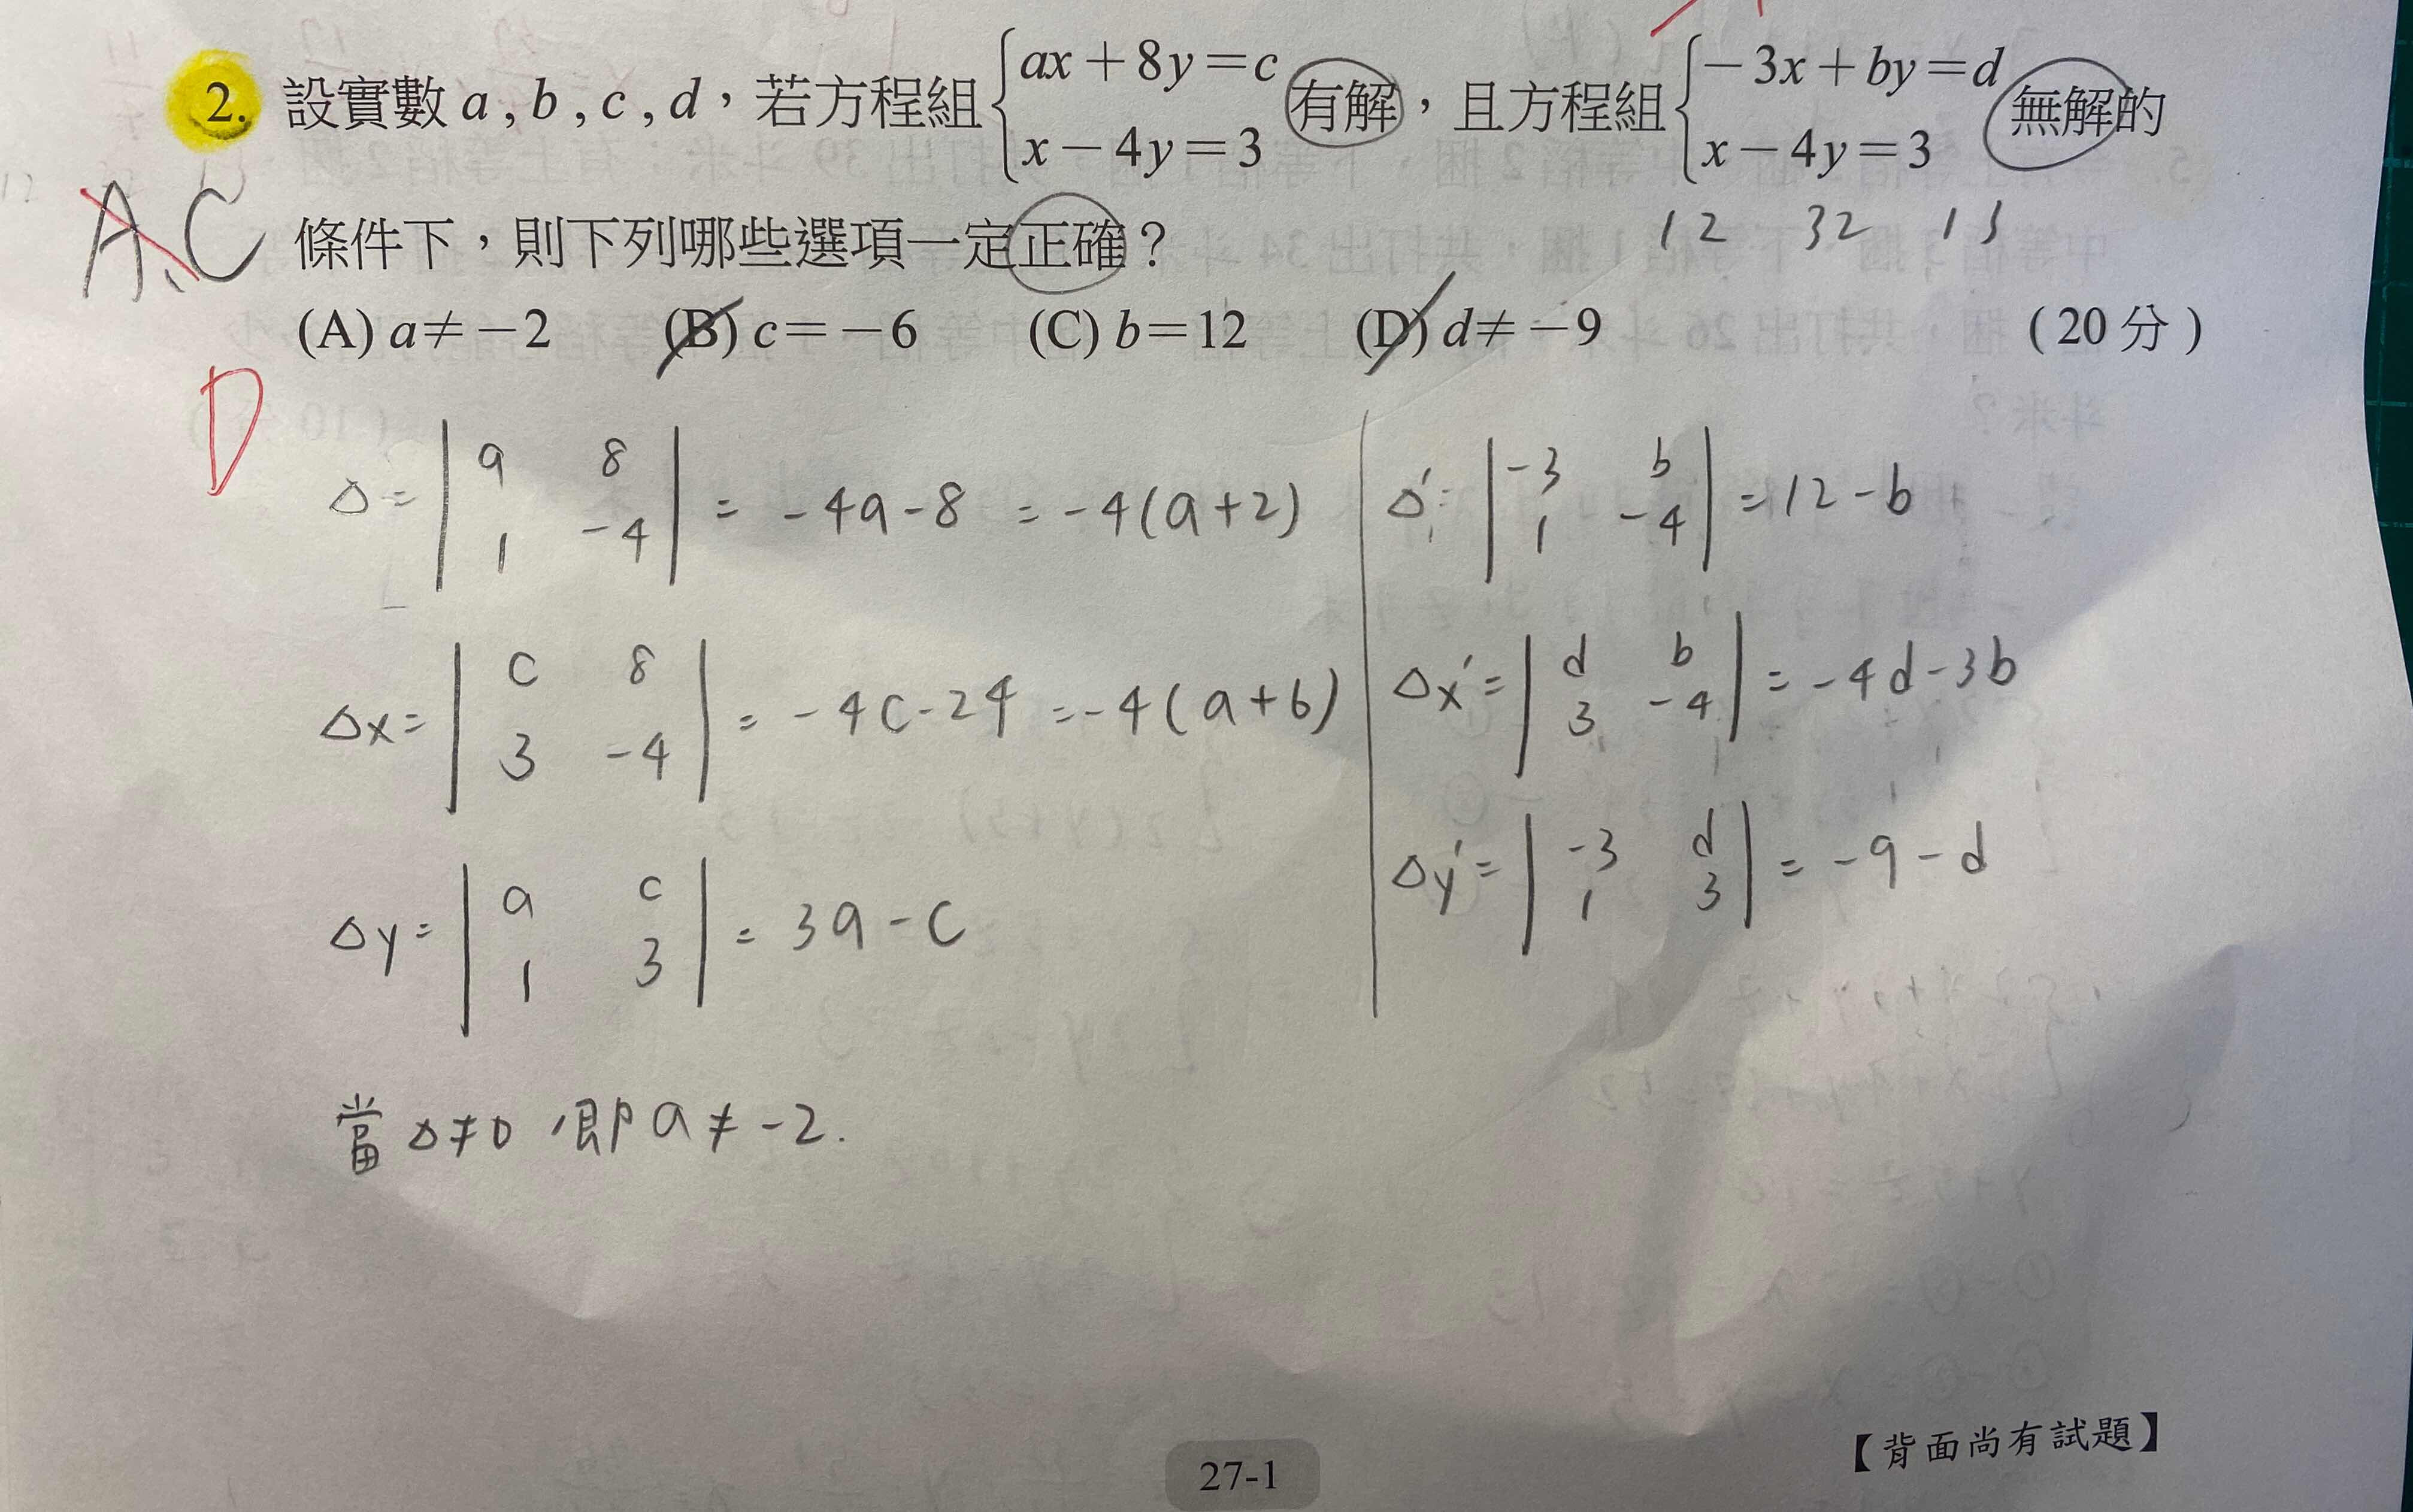 2. 設實數 a , b , c , d，若方程組 { ax＋8y＝c  x－4y＝3 有解，且方程組 { －3x＋by＝d  x－4y＝3 無解的
12 32 13
A、C 條件下，則下列哪些選項一定正確？
(A) a≠－2 (B) c＝－6 (C) b＝12 (D) d≠－9 （20 分）
D
△= | a 8  1 -4 | = -4a-8 = -4(a+2)
△x= | c 8  3 -4 | = -4c-24 =-4(a+6)
△y= | a c  1 3 | = 3a-c
△'= | -3 b  1 -4 | =12-b
△x'= | d b  3 -4 | = -4d-3b
△y'= | -3 d  1 3 | = -9-d
當△≠0，即 a≠-2.
【背面尚有試題】
27-1